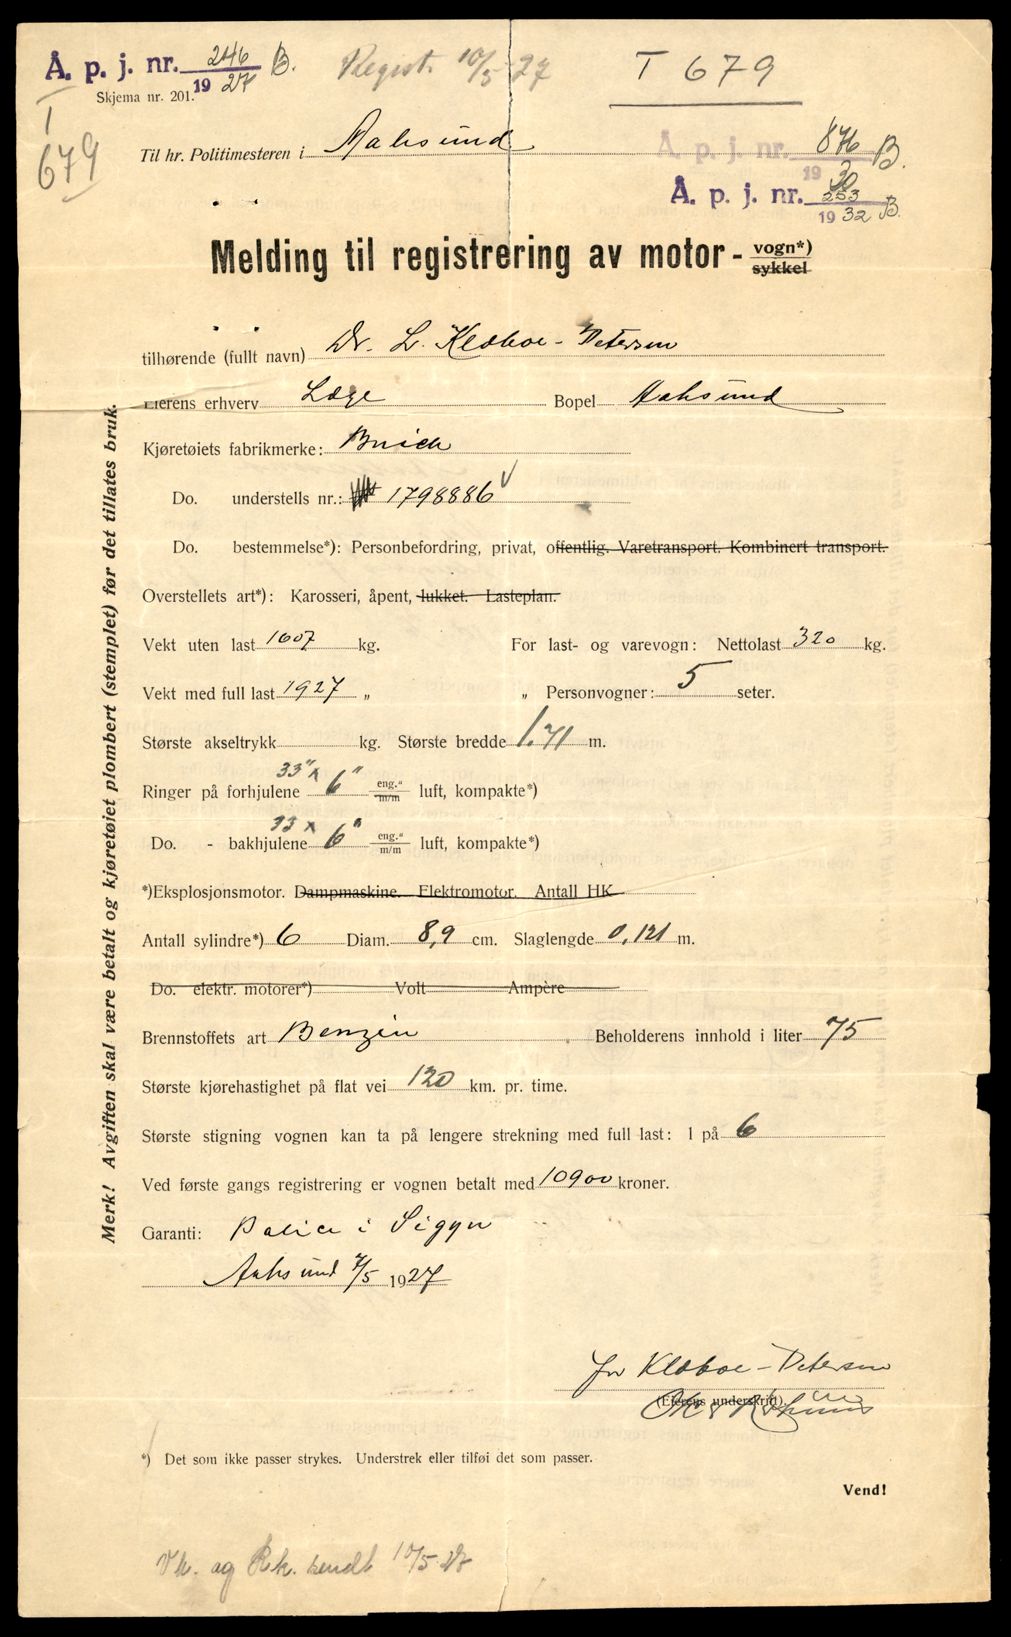 Å. p. j. nr. 246 B.
1927
Skjema nr. 201.
Regist. 10/5-27
T 679
T
679
Til hr. Politimesteren i Aalesund
Å. p. j. nr. 876 B.
1930
Å. p. j. nr. 253
1932 B.
Melding til registrering av motor- vogn*)
sykkel
tilhørende (fullt navn) Dr. L. Klæboe-Petersen
Eierens erhverv Læge Bopel Aalesund
Kjøretøiets fabrikmerke: Buick
Do. understells nr.: 1798886 √
Do. bestemmelse*): Personbefordring, privat, offentlig. Varetransport. Kombinert transport.
Overstellets art*): Karosseri, åpent, lukket. Lasteplan.
Vekt uten last 1607 kg. For last- og varevogn: Nettolast 320 kg.
Vekt med full last 1927 „ „ Personvogner: 5 seter.
Største akseltrykk kg. Største bredde 1.71 m.
Ringer på forhjulene 33" x 6" eng."
m/m luft, kompakte*)
Do. - bakhjulene 33 x 6" eng."
m/m luft, kompakte*)
*)Eksplosjonsmotor. Dampmaskine. Elektromotor. Antall HK
Antall sylindre*) 6 Diam. 8,9 cm. Slaglengde 0,121 m.
Do. elektr. motorer*) Volt Ampère
Brennstoffets art Benzin Beholderens innhold i liter 75
Største kjørehastighet på flat vei 120 km. pr. time.
Største stigning vognen kan ta på lengere strekning med full last: 1 på 6
Ved første gangs registrering er vognen betalt med 10900 kroner.
Garanti: Police i Sigyn
Aalesund 7/5 1927
for Klæboe-Petersen
(Eierens underskrift)
*) Det som ikke passer strykes. Understrek eller tilføi det som passer.
Vend!
Vk. og Rk. sendt 10/5-27
Merk! Avgiften skal være betalt og kjøretøiet plombert (stemplet) før det tillates bruk.